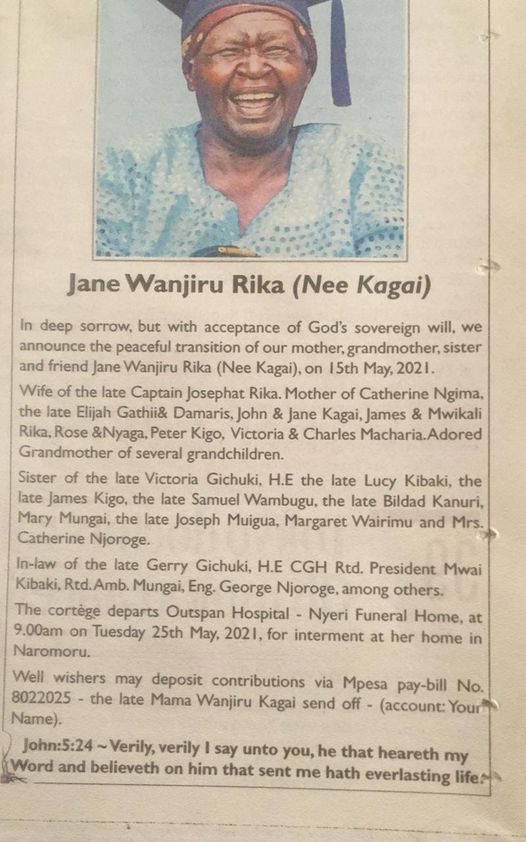 Jane Wanjiru Rika (Nee Kagai)
In deep sorrow, but with acceptance of God's sovereign will, we
announce the peaceful transition of our mother, grandmother, sister
and friend Jane Wanjiru Rika (Nee Kagai), on 15th May, 2021.
Wife of the late Captain Josephat Rika. Mother of Catherine Ngima,
the late Elijah Gathii& Damaris, John & Jane Kagai, James & Mwikali
Rika, Rose &Nyaga, Peter Kigo, Victoria & Charles Macharia.Adored
Grandmother of several grandchildren.
Sister of the late Victoria Gichuki, H.E the late Lucy Kibaki, the
late James Kigo, the late Samuel Wambugu, the late Bildad Kanuri,
Mary Mungai, the late Joseph Muigua, Margaret Wairimu and Mrs.
Catherine Njoroge.
In-law of the late Gerry Gichuki, H.E CGH Rtd. President Mwai
Kibaki, Rtd.Amb. Mungai, Eng. George Njoroge, among others.
The cortège departs Outspan Hospital - Nyeri Funeral Home, at
9.00am on Tuesday 25th May, 2021, for interment at her home in
Naromoru.
Well wishers may deposit contributions via Mpesa pay-bill No.
8022025 - the late Mama Wanjiru Kagai send off - (account: Your
Name).
John:5:24 ~ Verily, verily I say unto you, he that heareth my
Word and believeth on him that sent me hath everlasting life.